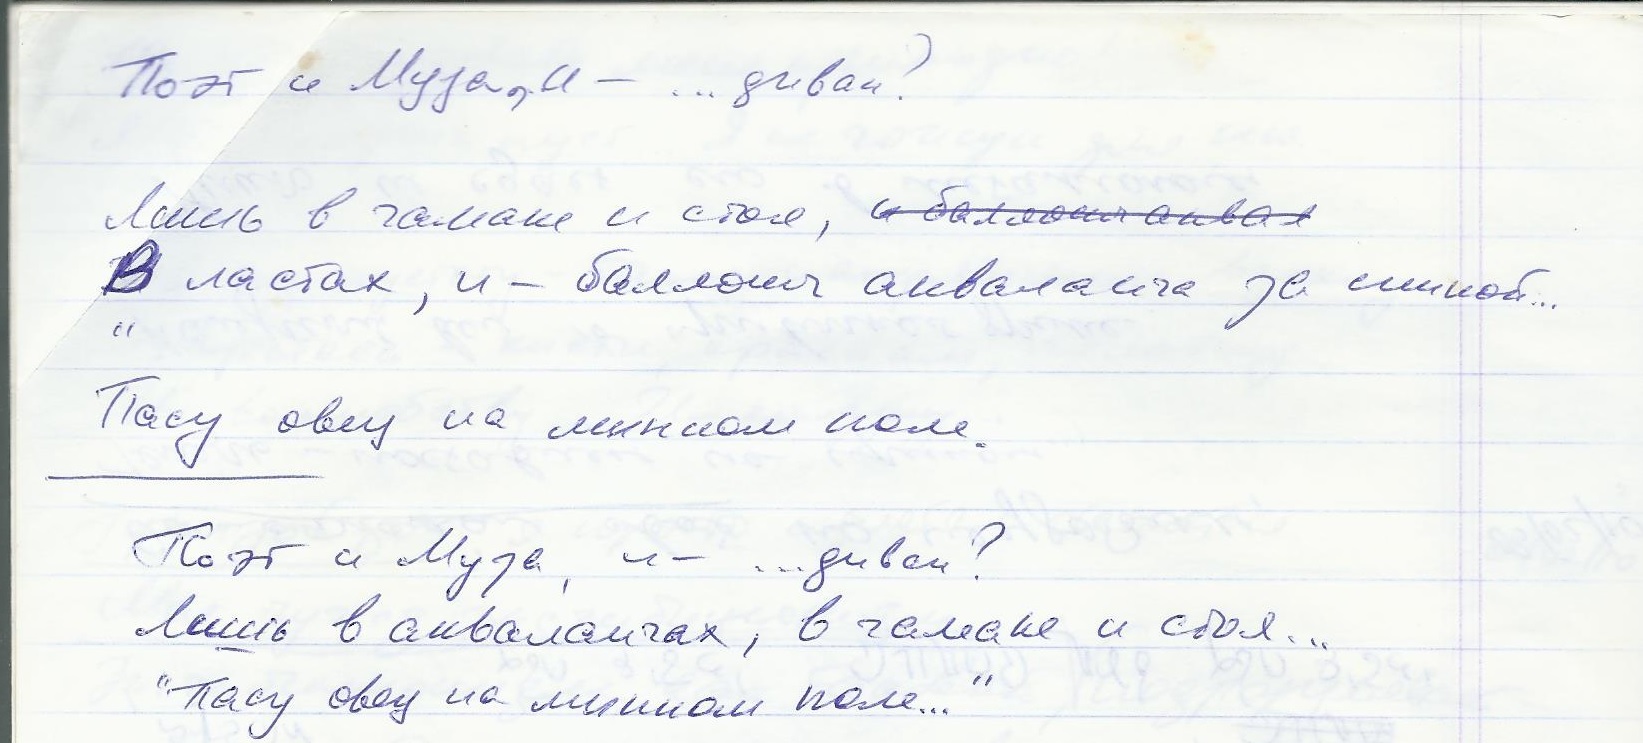 Поэт и Муза, и – ... диван?
Лишь в гамаке и стоя, и баллоны аквал
В ластах, и – баллоны акваланга за спиной...
"
Пасу овец на минном поле.
Поэт и Муза, и – ...диван?
Лишь в аквалангах, в гамаке и стоя...
"Пасу овец на минном поле..."